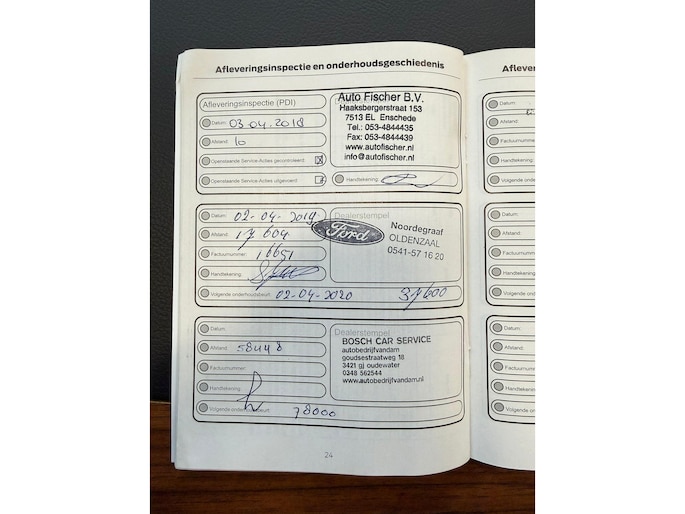 Afleveringsinspectie en onderhoudsgeschiedenis
Aflever
Afleveringsinspectie (PDI)
Auto Fischer B.V.
Haaksbergerstraat 153
7513 EL Enschede
Tel.: 053-4844435
Fax: 053-4844439
www.autofischer.nl
info@autofischer.nl
Datum: 03-04-2018
Afstand: 10
Openstaande Service-Acties gecontroleerd:
Openstaande Service-Acties uitgevoerd:
Handtekening:
Datum: 02-04-2019
Dealerstempel
Ford
Noordegraaf
OLDENZAAL
0541-57 16 20
Afstand: 17604
Factuurnummer: 16651
Handtekening:
Volgende onderhoudsbeurt: 02-04-2020 37600
Datum:
Dealerstempel
BOSCH CAR SERVICE
autobedrijfvandam
goudsestraatweg 18
3421 gj oudewater
0348 562544
www.autobedrijfvandam.nl
Afstand: 58448
Factuurnummer:
Handtekening:
Volgende onderhoudsbeurt: 78000
24
Datum:
Afstand:
Factuurnummer:
Handtekening:
Volgende onderh
Datum:
Afstand:
Factuurnummer:
Handtekening:
Volgende onderh
Datum:
Afstand:
Factuurnummer:
Handtekening:
Volgende onderh